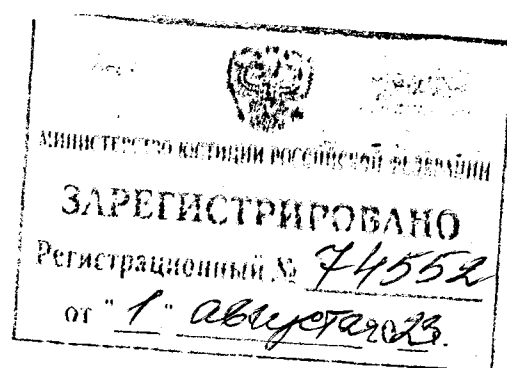 МИНИСТЕРСТВО ЮСТИЦИИ РОССИЙСКОЙ ФЕДЕРАЦИИ
ЗАРЕГИСТРИРОВАНО
Регистрационный № 74552
от "1" августа 2023.